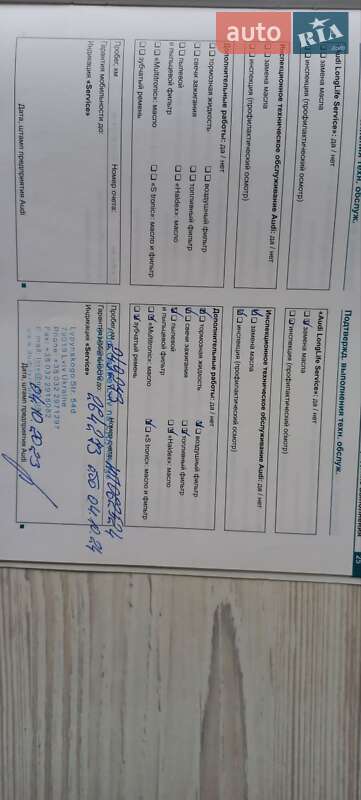 auto RIA
25
Подтвержд. выполнения техн. обслуж.
«Audi LongLife Service»: да / нет
замена масла
инспекция (профилактический осмотр)
Инспекционное техническое обслуживание Audi: да / нет
замена масла
инспекция (профилактический осмотр)
Дополнительные работы: да / нет
тормозная жидкость
воздушный фильтр
свечи зажигания
топливный фильтр
пылевой
«Haldex»: масло
и пылевой фильтр
«Multitronic»: масло
«S tronic»: масло и фильтр
зубчатый ремень
Пробег, км:
Номер счета:
Гарантия мобильности до:
Индикация «Service»
Дата, штамп предприятия Audi
техн. обслуж.
Audi LongLife Service»: да / нет
замена масла
инспекция (профилактический осмотр)
Инспекционное техническое обслуживание Audi: да / нет
замена масла
инспекция (профилактический осмотр)
Дополнительные работы: да / нет
тормозная жидкость
воздушный фильтр
свечи зажигания
топливный фильтр
пылевой
«Haldex»: масло
и пылевой фильтр
«Multitronic»: масло
«S tronic»: масло и фильтр
зубчатый ремень
Пробег, км:
Гарантия мобильности до:
04.10.24
Индикация «Service»
79019 Lviv Ukraine
04.10.2023
Дата, штамп предприятия Audi